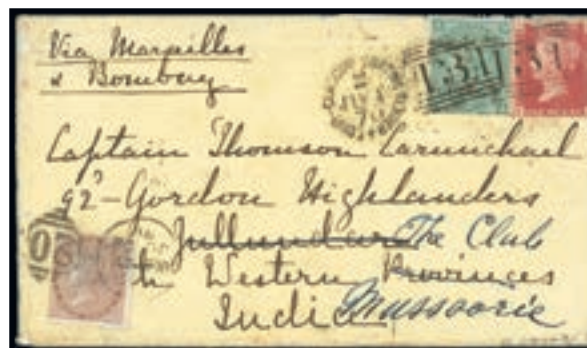 Via Marseilles
& Bombay
131 131
Captain Thomson Carmichael
92d Gordon Highlanders
Jullundur The Club
Western Provinces
India Mussoorie